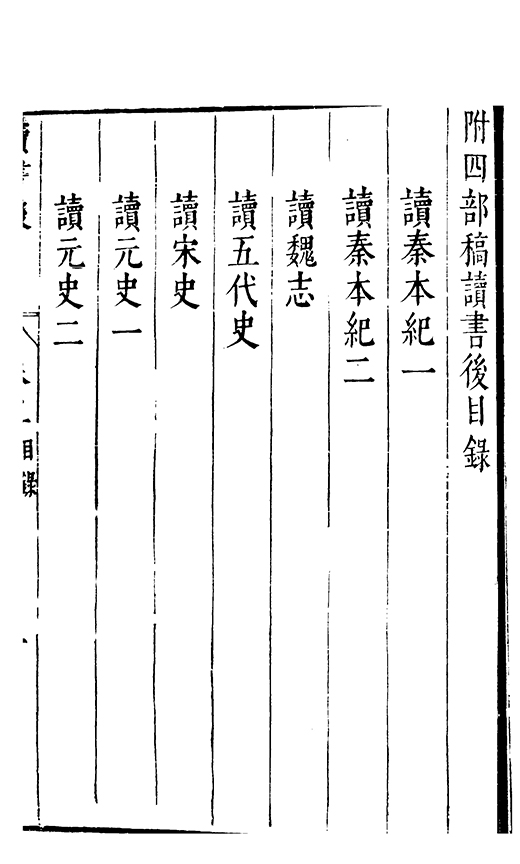 附四部稿讀書後目錄
讀秦本紀一
讀秦本紀二
讀魏志
讀五代史
讀宋史
讀元史一
讀元史二
目錄